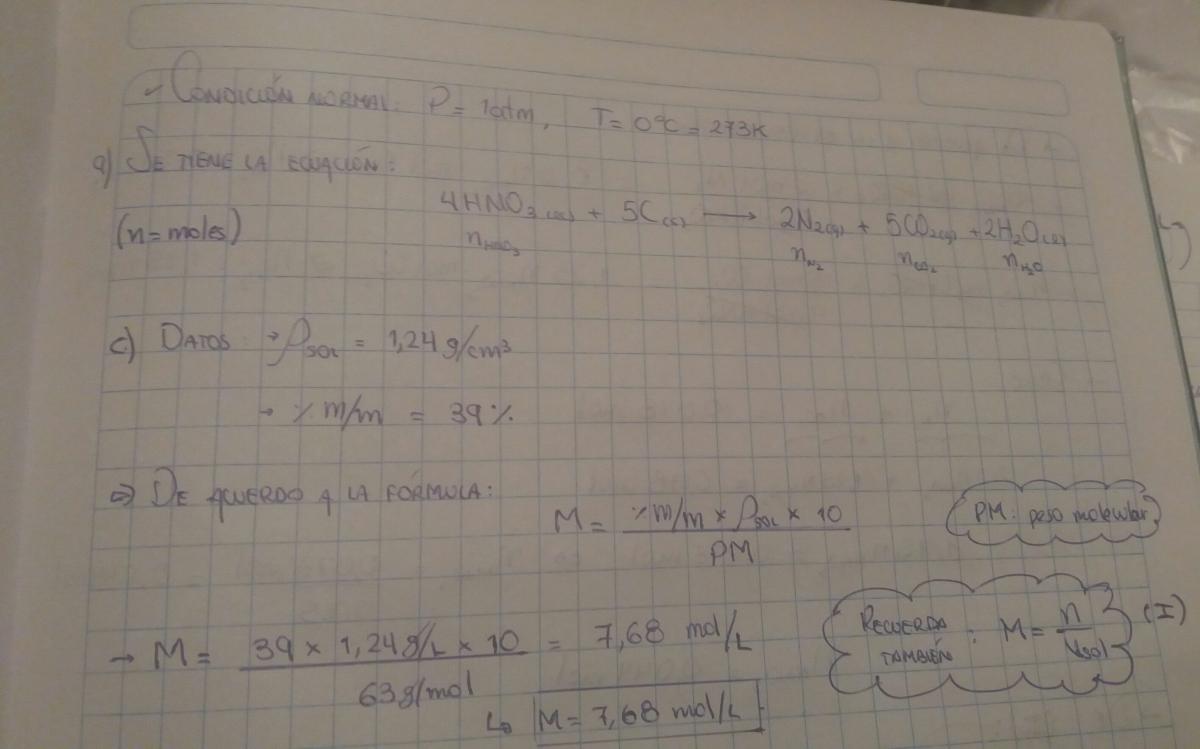 ✓ CONDICIÓN NORMAL: P = 1atm, T = 0°C = 273K
a) SE TIENE LA ECUACIÓN:
4HNO₃(ac) + 5C(s) → 2N₂(g) + 5CO₂(g) + 2H₂O(l)
(n=moles) nHNO₃ nN₂ nCO₂ nH₂O
c) DATOS: → ρSOL = 1,24 g/cm³
→ % m/m = 39%
⇒ DE ACUERDO A LA FÓRMULA:
M = % m/m × ρSOL × 10 / PM
PM: peso molecular
→ M = 39 × 1,24 g/L × 10 / 63 g/mol = 7,68 mol/L
RECUERDA TAMBIÉN : M = n / Vsol (I)
↳ M = 7,68 mol/L